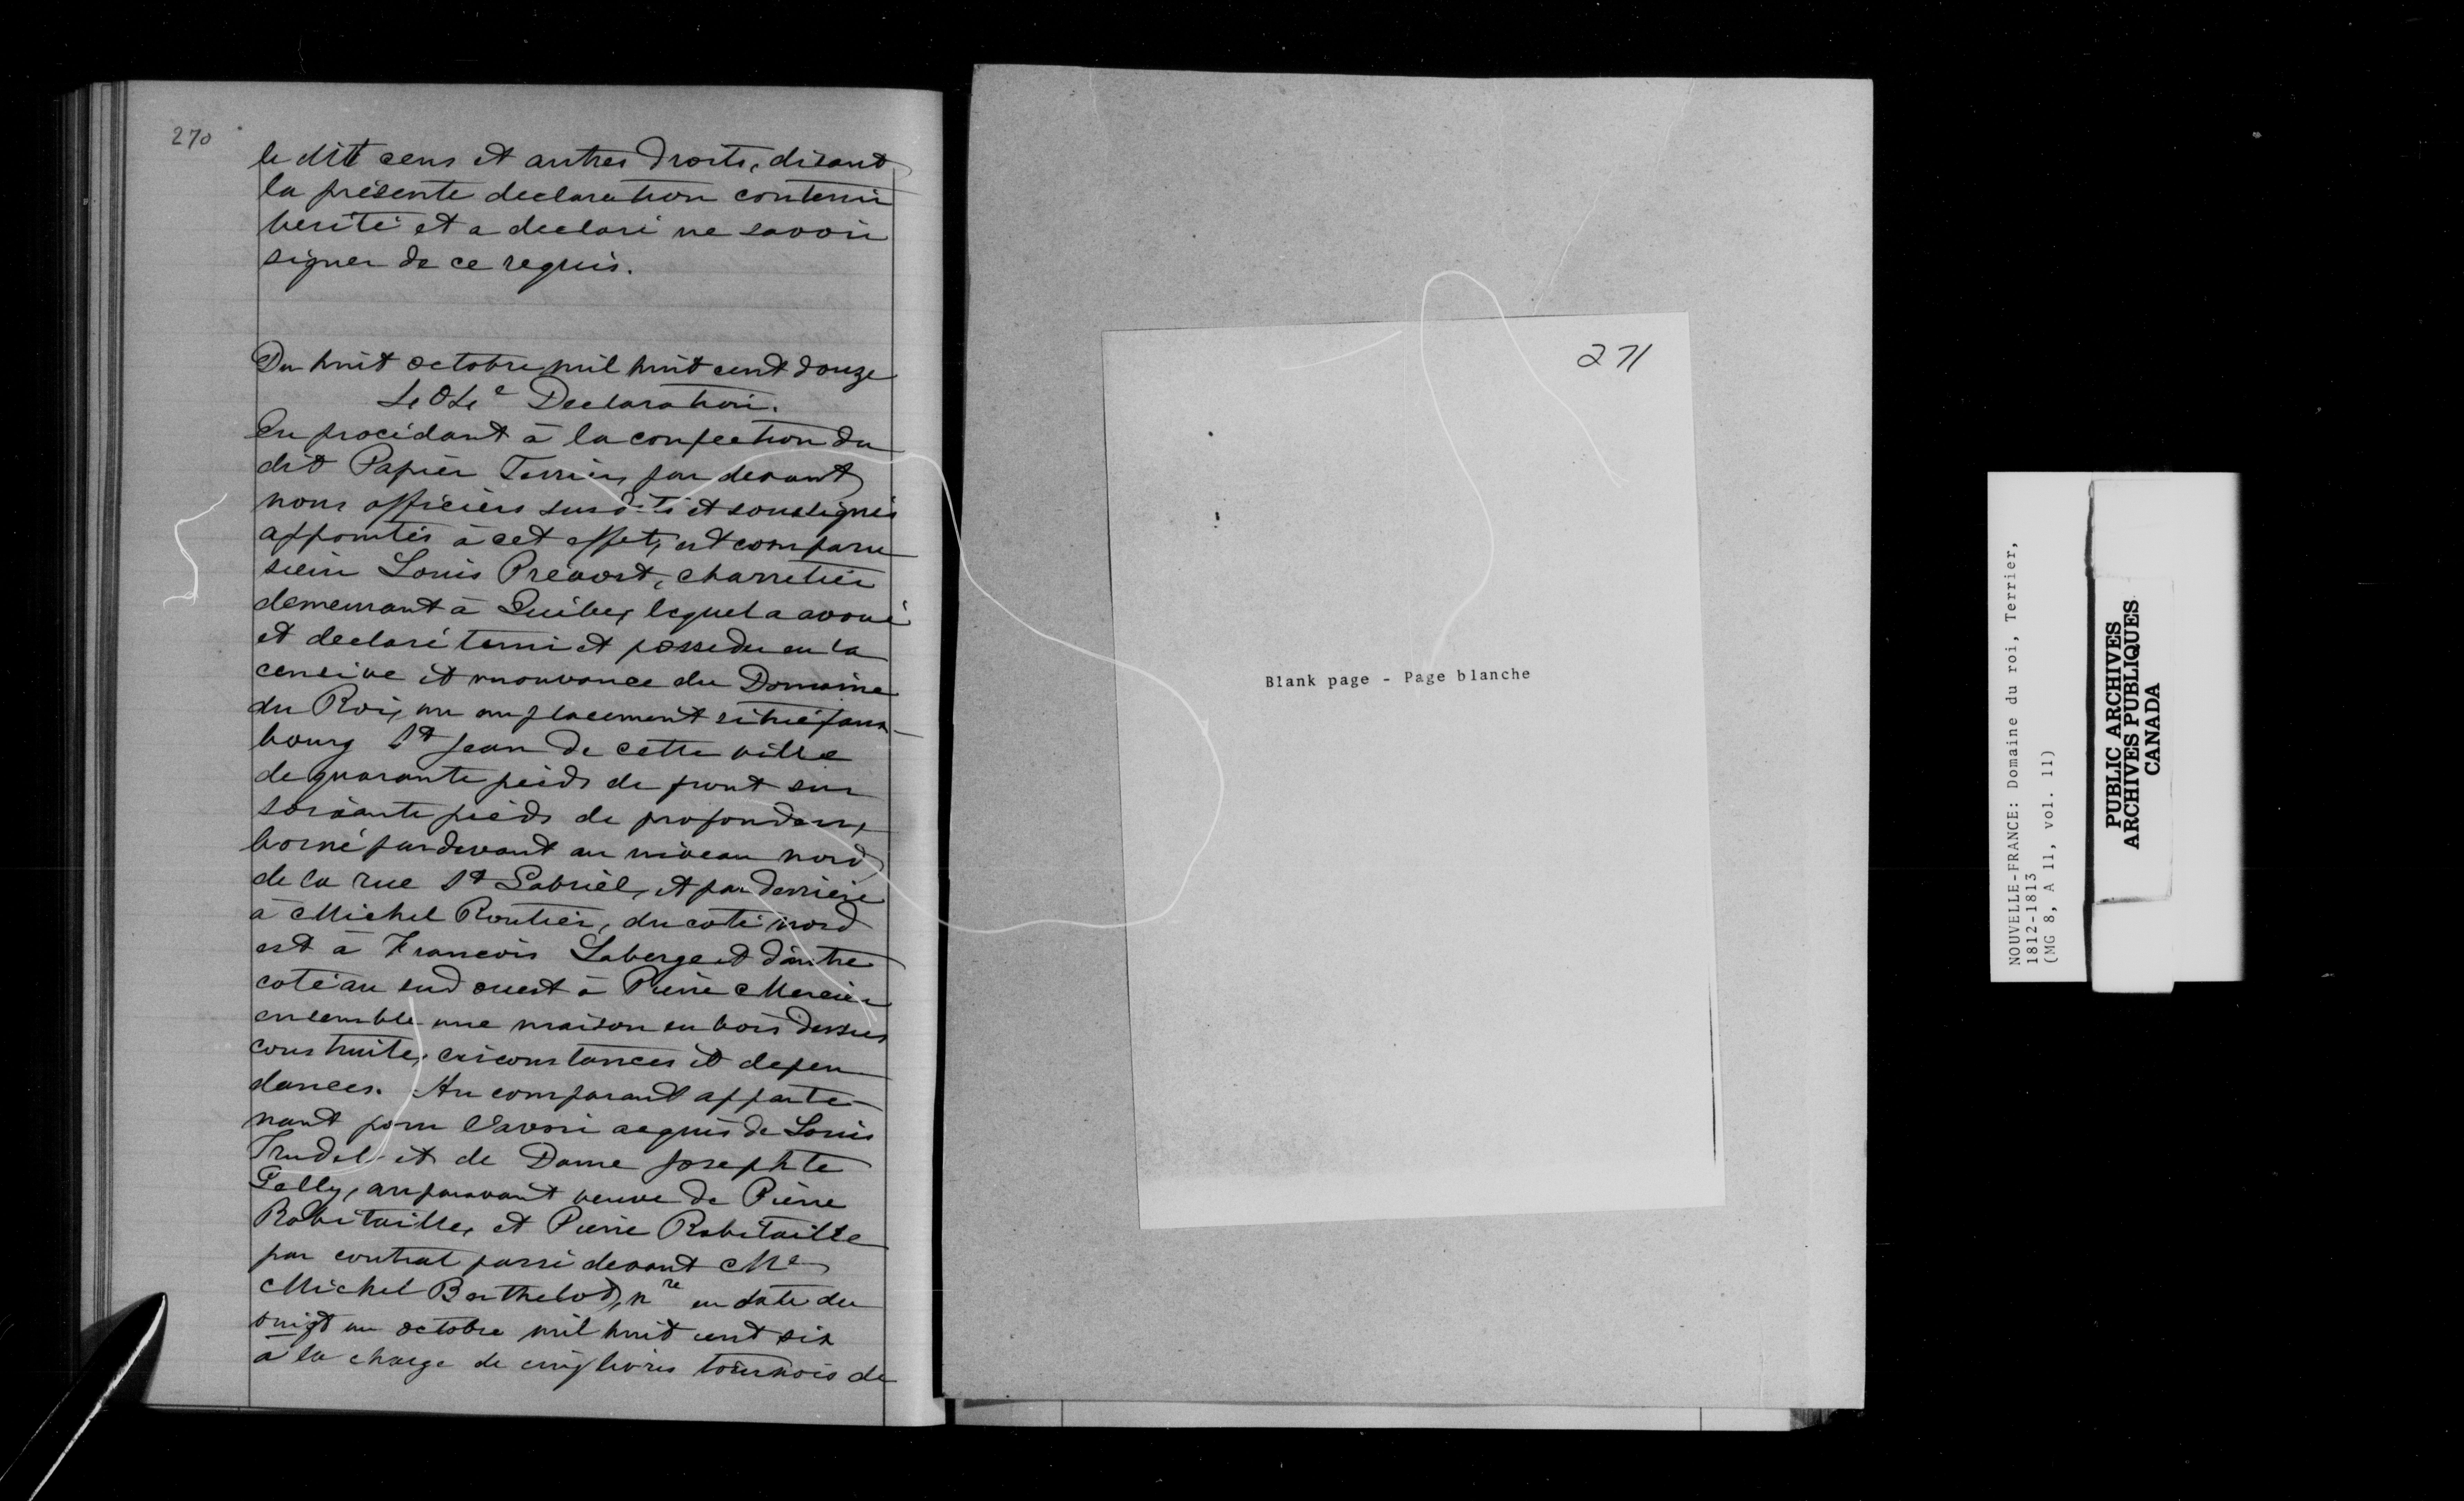 270
le dit cens et autres droits, disant
la présente declaration contenir
verité et a declaré ne savoir
signer de ce requis.
Du huit octobre mil huit cent douze
Declaration.
En procédant à la confection du
dit Papier Terrier, par devant
nous officiers susdits et soussignés
appointés à cet effet, est comparu
sieur Louis Prevost, charretier
demeurant à Quebec, lequel a avoué
et declaré tenir et posseder en la
censive et mouvance du Domaine
du Roi, un emplacement situé faux-
bourg St Jean de cette ville
de quarante pieds de front sur
soixante pieds de profondeur,
borné par devant au niveau nord
de la rue St Gabriel, et par derriere
à Michel Routier, du coté nord
est à Francois Laberge et d'autre
coté au sud ouest à Pierre Mercier
ensemble une maison en bois dessus
construite, circonstances et depen
dances. Au comparant apparte-
nant pour l'avoir acquis de Louis
Trudel et de Dame Josephte
Pelly, auparavant veuve de Pierre
Robitaille, et Pierre Robitaille
par contrat passé devant Me
Michel Berthelot, nre en date du
vingt un octobre mil huit cent six
à la charge de cinq livres tournois de
271
Blank page - Page blanche
NOUVELLE-FRANCE: Domaine du roi, Terrier,
1812-1813
(MG 8, A 11, vol. 11)
PUBLIC ARCHIVES
ARCHIVES PUBLIQUES
CANADA